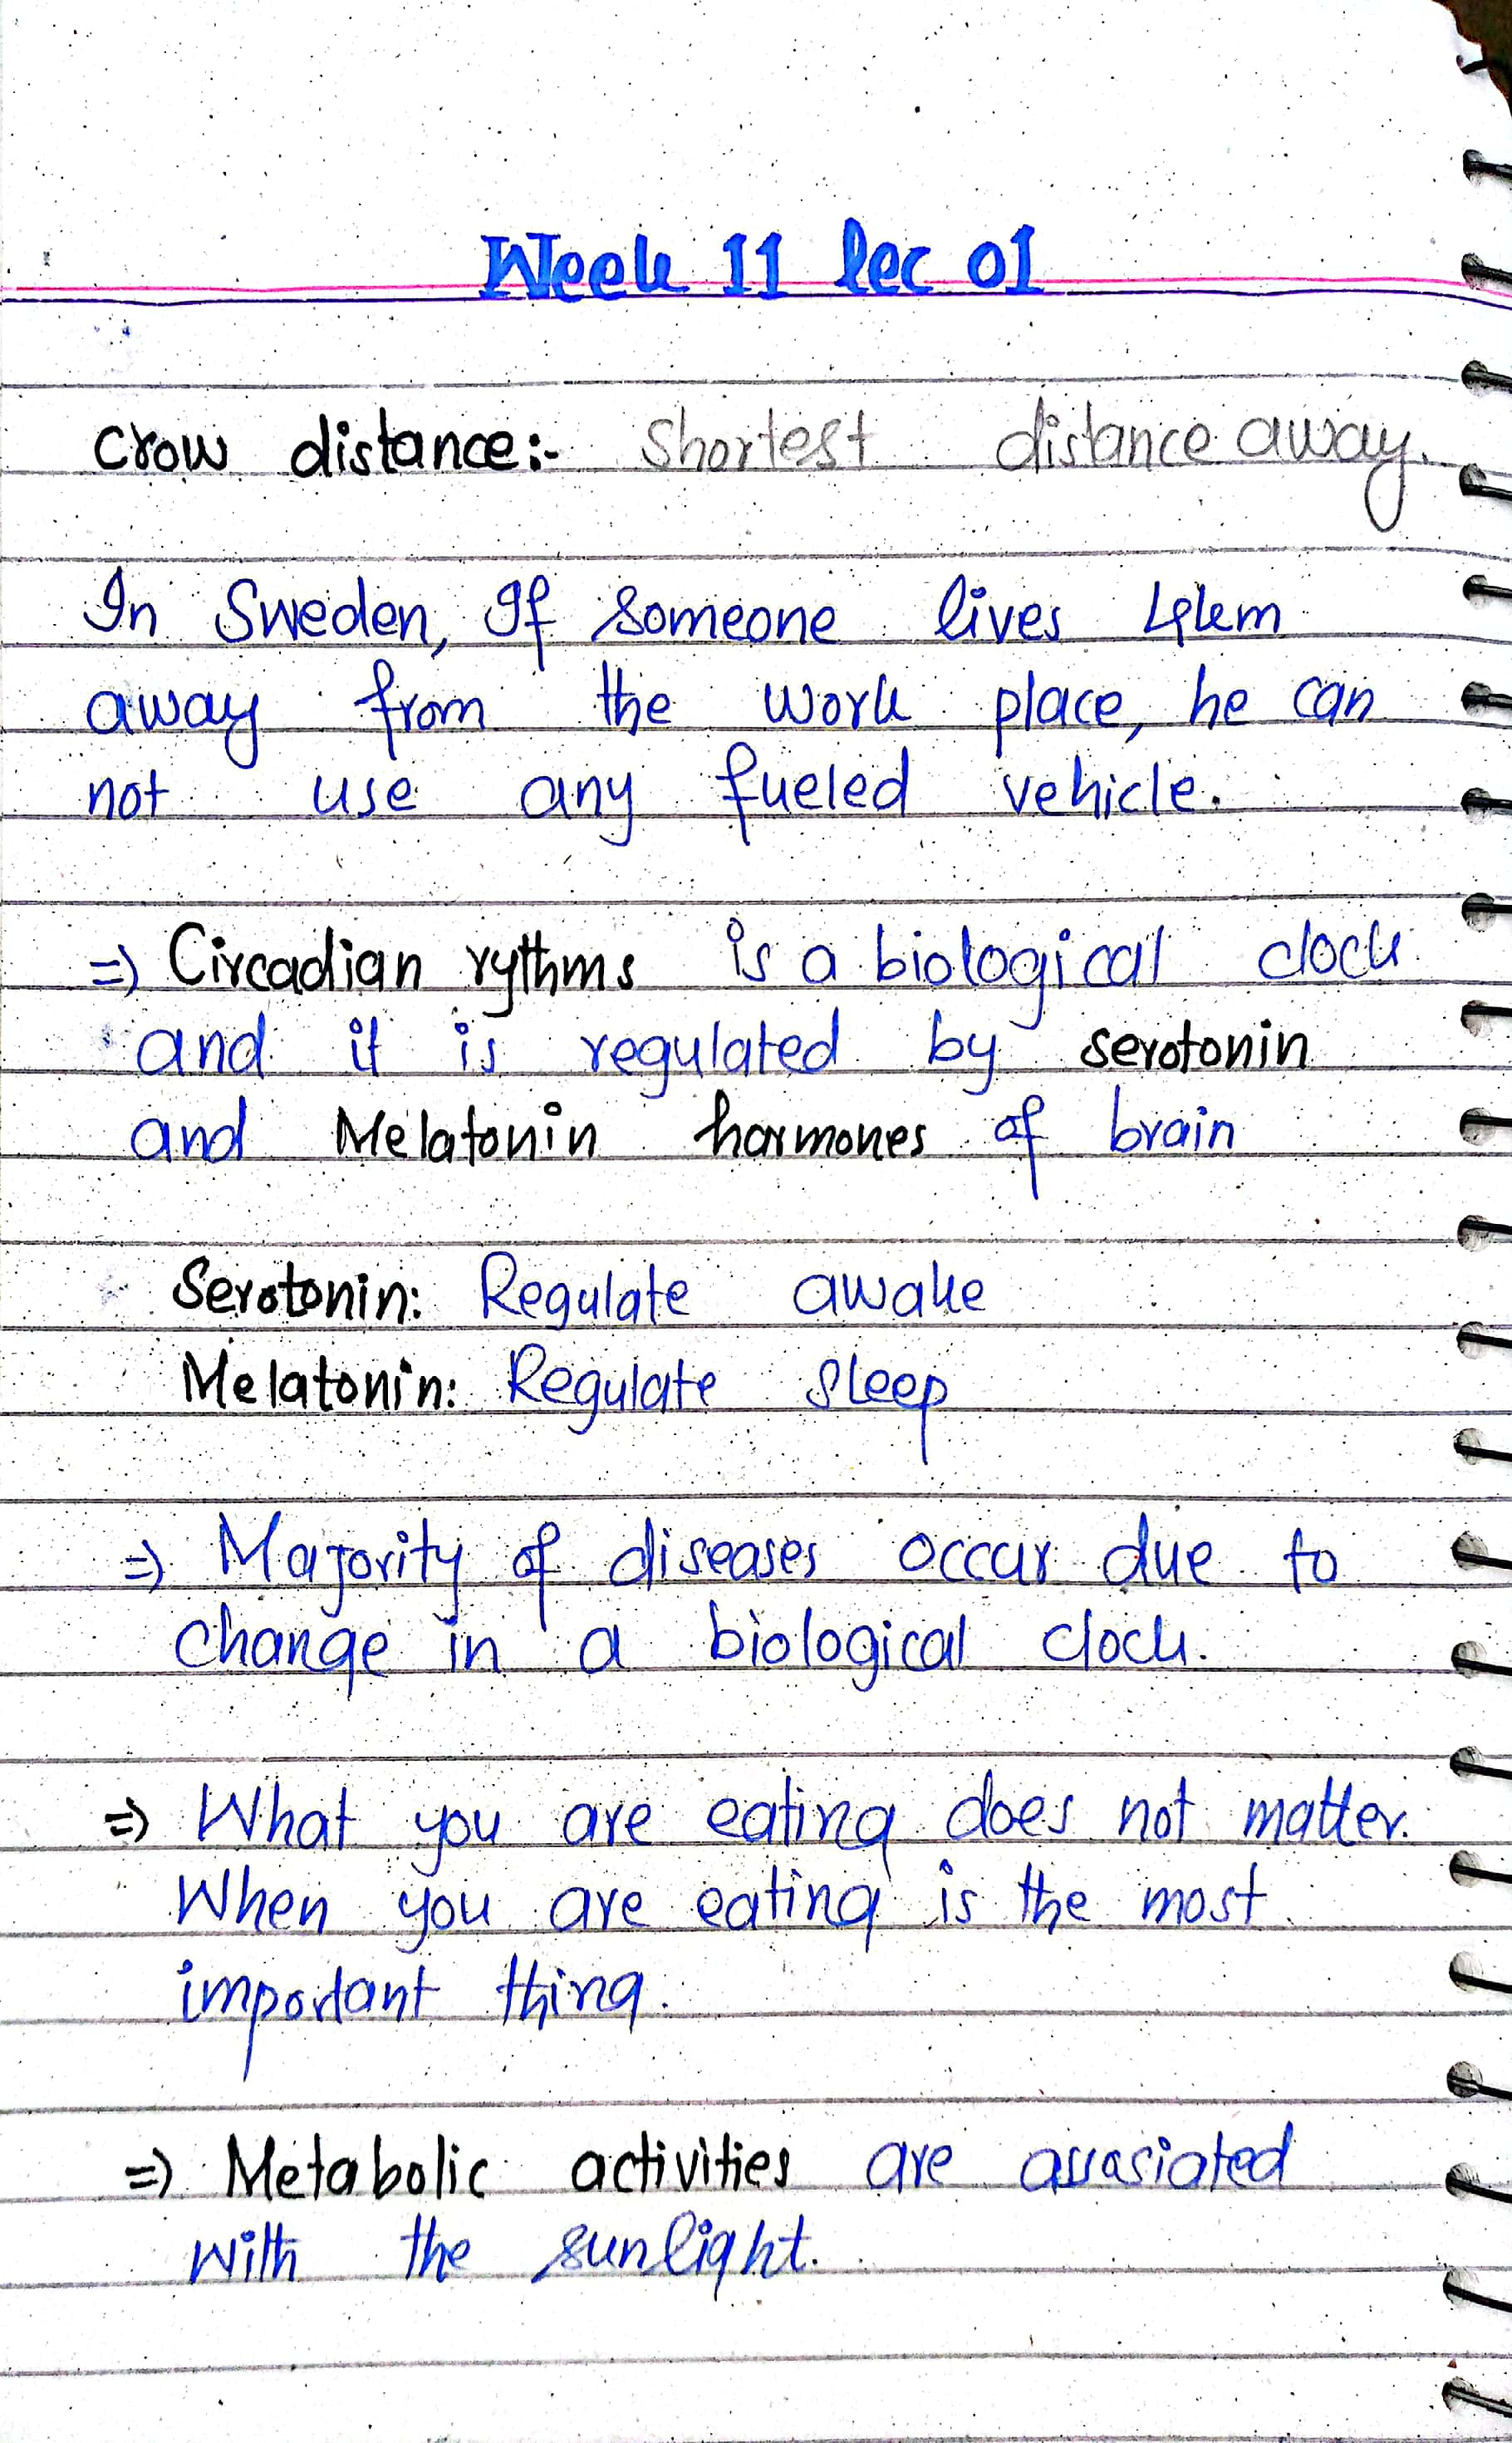 Week 11 lec 01
Crow distance:- Shortest distance away.
In Sweden, If someone lives 4km
away from the work place, he can
not use any fueled vehicle.
=> Circadian rythms is a biological clock
and it is regulated by serotonin
and Melatonin hormones of brain
Serotonin: Regulate awake
Melatonin: Regulate sleep
=> Majority of diseases occur due to
change in a biological clock.
=> What you are eating does not matter.
When you are eating is the most
important thing.
=> Metabolic activities are assosiated
with the sunlight.